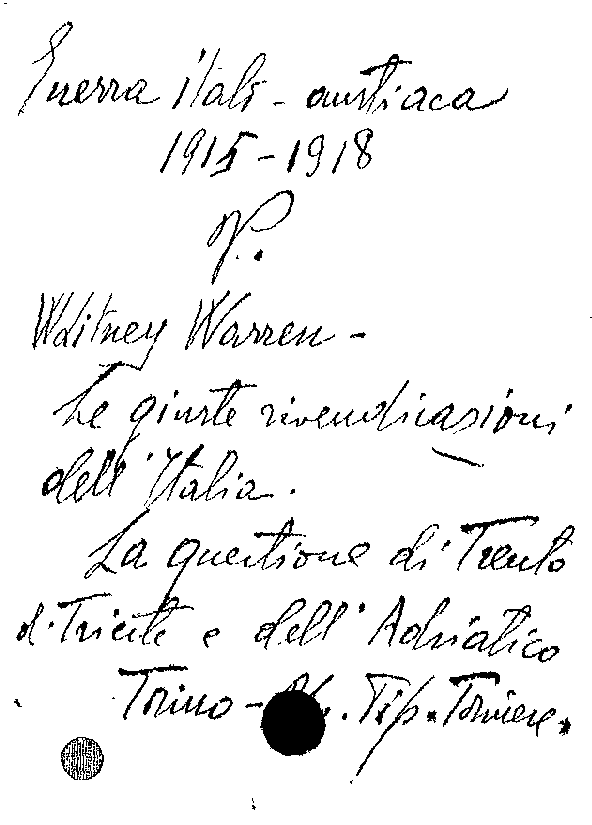 Guerra italo-austriaca
1915-1918
Whitney Warren -
Le giuste rivendicazioni
dell'Italia.
La questione di Trento
di Trieste e dell'Adriatico
Torino - Tip.